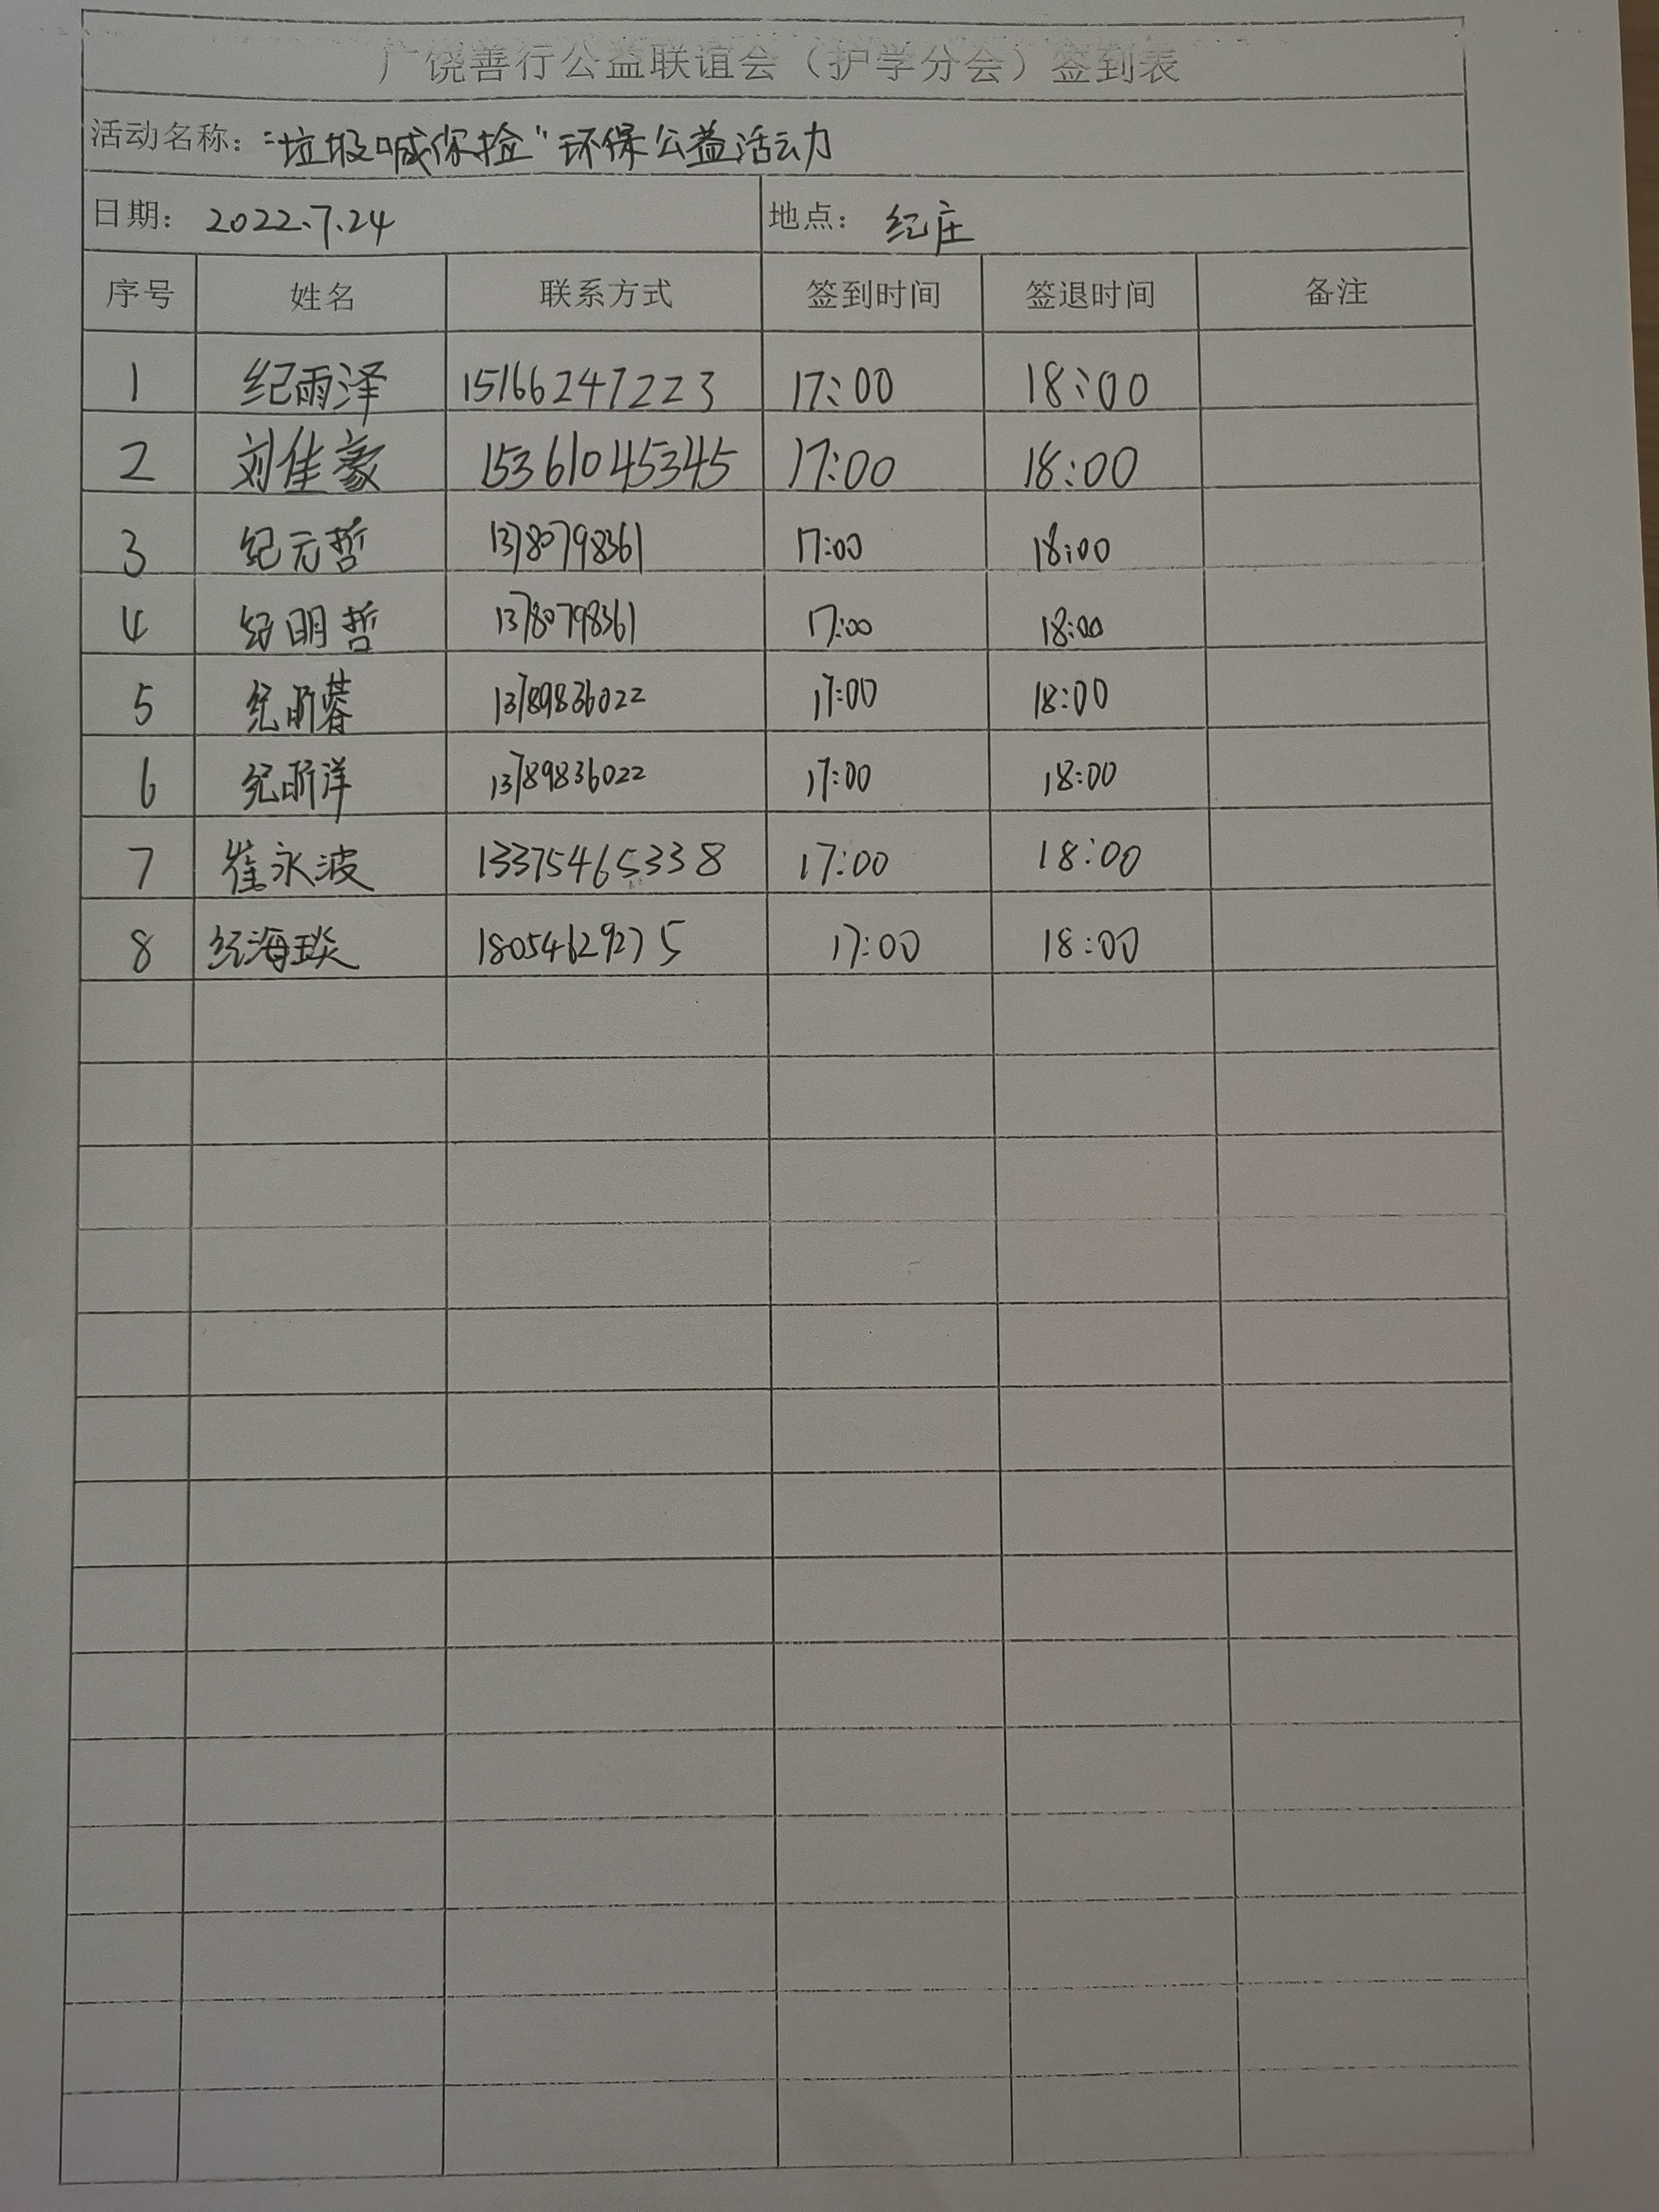 广饶善行公益联谊会（护学分会）签到表
活动名称：“垃圾喊你捡”环保公益活动
日期： 2022.7.24 地点： 纪庄
序号 姓名 联系方式 签到时间 签退时间 备注
1 纪雨泽 15166247223 17:00 18:00
2 刘佳豪 15361045345 17:00 18:00
3 纪元哲 13780798361 17:00 18:00
4 纪明哲 13780798361 17:00 18:00
5 纪昕蓉 13789836022 17:00 18:00
6 纪昕洋 13789836022 17:00 18:00
7 崔永波 13375465338 17:00 18:00
8 纪海琰 18054629275 17:00 18:00